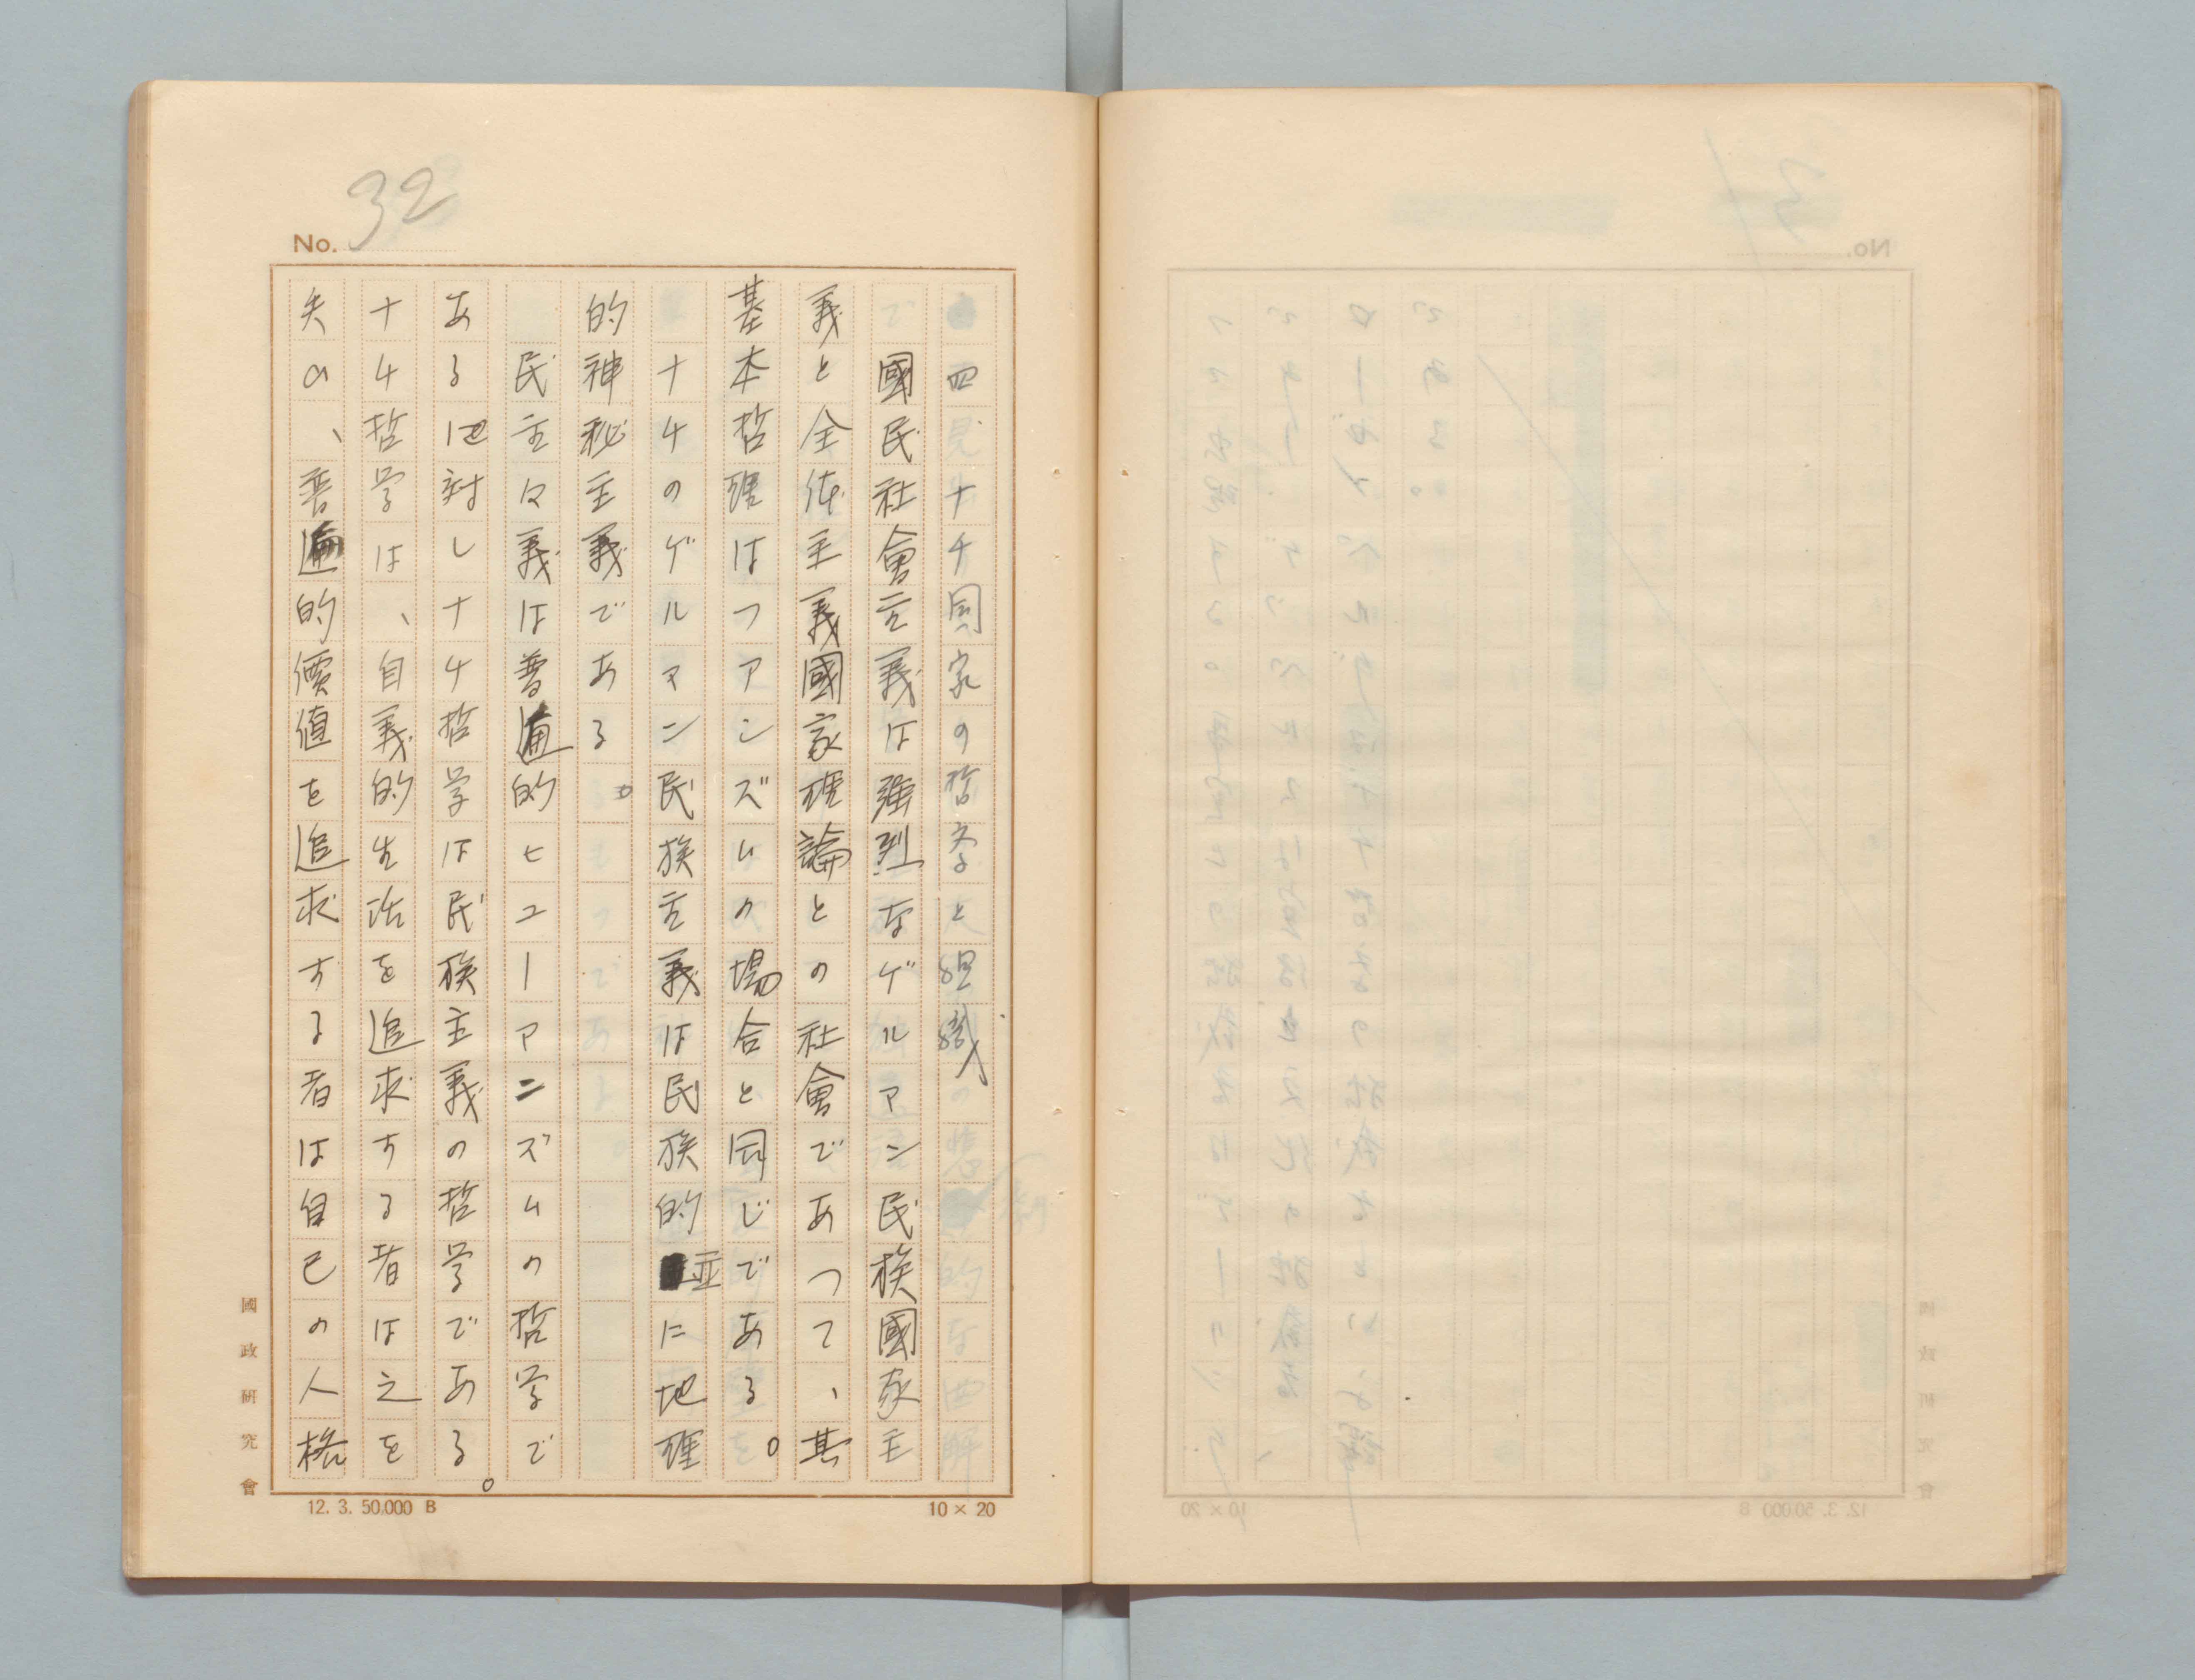 32
No.
四 ナチ国家の哲学と組織
國民社會主義は強烈なゲルマン民族國家主
義と全体主義國家理論との社會であつて、其
基本哲理はファシズムの場合と同じである。
ナチのゲルマン民族主義は民族的並に地理
的神秘主義である。
民主々義は普遍的ヒューマニズムの哲学で
あるに対しナチ哲学は民族主義の哲学である。
ナチ哲学は、自義的生活を追求する者は之を
失ひ、普遍的價値を追求する者は自己の人格
國政研究會
12. 3. 50,000 B
10 × 20